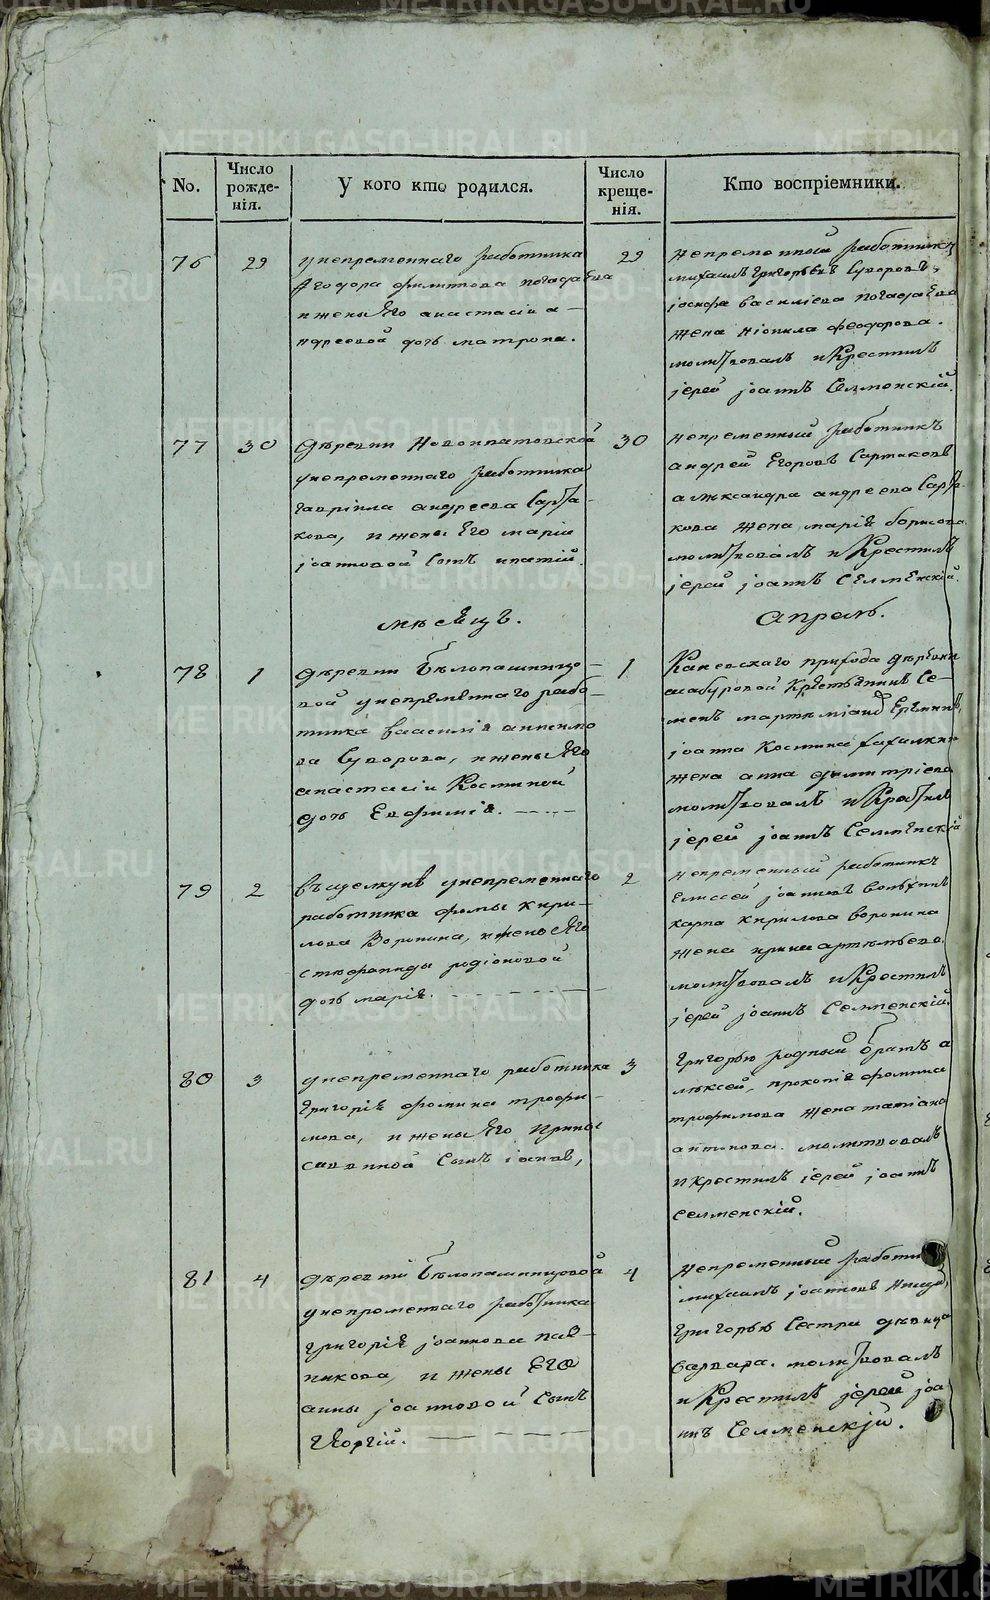 METRIKI.GASO-URAL.RU
No.
Число рожде-
нія.
У кого кто родился.
Число креще-
нія.
Кто воспріемники.
76 29
унепременнаго работника
Ѳеодора филипова погадаева
и жены Его анастасіи а-
ндреевой дочь матрона.
29
непременный работникъ
михаилъ григорьевъ Суворовъ,
іосифа василіева погадаева
жена Неонила феодорова.
молитвовалъ и Крестилъ
іерей іоаннъ Селменскій.
77 30
деревни Новоипатовской
унепременнаго работника
гавріила андреева Сарта-
кова, и жены Его маріи
іоанновой Сынъ ипатій.
30
непременный работникъ
андрей Егоровъ Сартаковъ
александра андреева Сарта-
кова жена марія борисова
молитвовалъ и Крестилъ
іерей іоаннъ Селменскій.
мѣсяцъ. Апрель.
78 1
деревни Белопашинцо-
вой унепременнаго рабо-
тника василія анисимо
ва Суворова, и жены Его
анастасіи Костиной
дочь Евфимія.
1
прихода деревни
Крестьянинъ Се-
менъ
іоанна Костина
жена анна димитріева
молитвовалъ и Крестилъ
іерей іоаннъ Селменскій
79 2
въ щелкунѣ унепременнаго
работника фомы Кири-
лова Воронина, и жены Его
стефаниды родіоновой
дочь марія.
2
непременный работникъ
Елисей іоанновъ
карпа Кирилова воронина
жена ирина артемьева.
молитвовалъ и Крестилъ
іерей іоаннъ Селменскій.
80 3
унепременнаго работника
григорія фомина трофи-
мова, и жены Его Ирины
саввиной Сынъ іаковъ,
3
Григорью родный братъ а
лексей, прокопія фомина
трофимова жена татіана
антонова. молитвовалъ
и крестилъ іерей іоаннъ
селменскій.
81 4
деревни Белопашинцовой
унепременнаго работника
григорія іоаннова
и жены Его
анны іоанновой Сынъ
Георгій.
4
непременный
михаилъ іоанновъ
григорью Сестра девица
варвара. молитвовалъ
и Крестилъ іерей іоа
ннъ Селменскій.